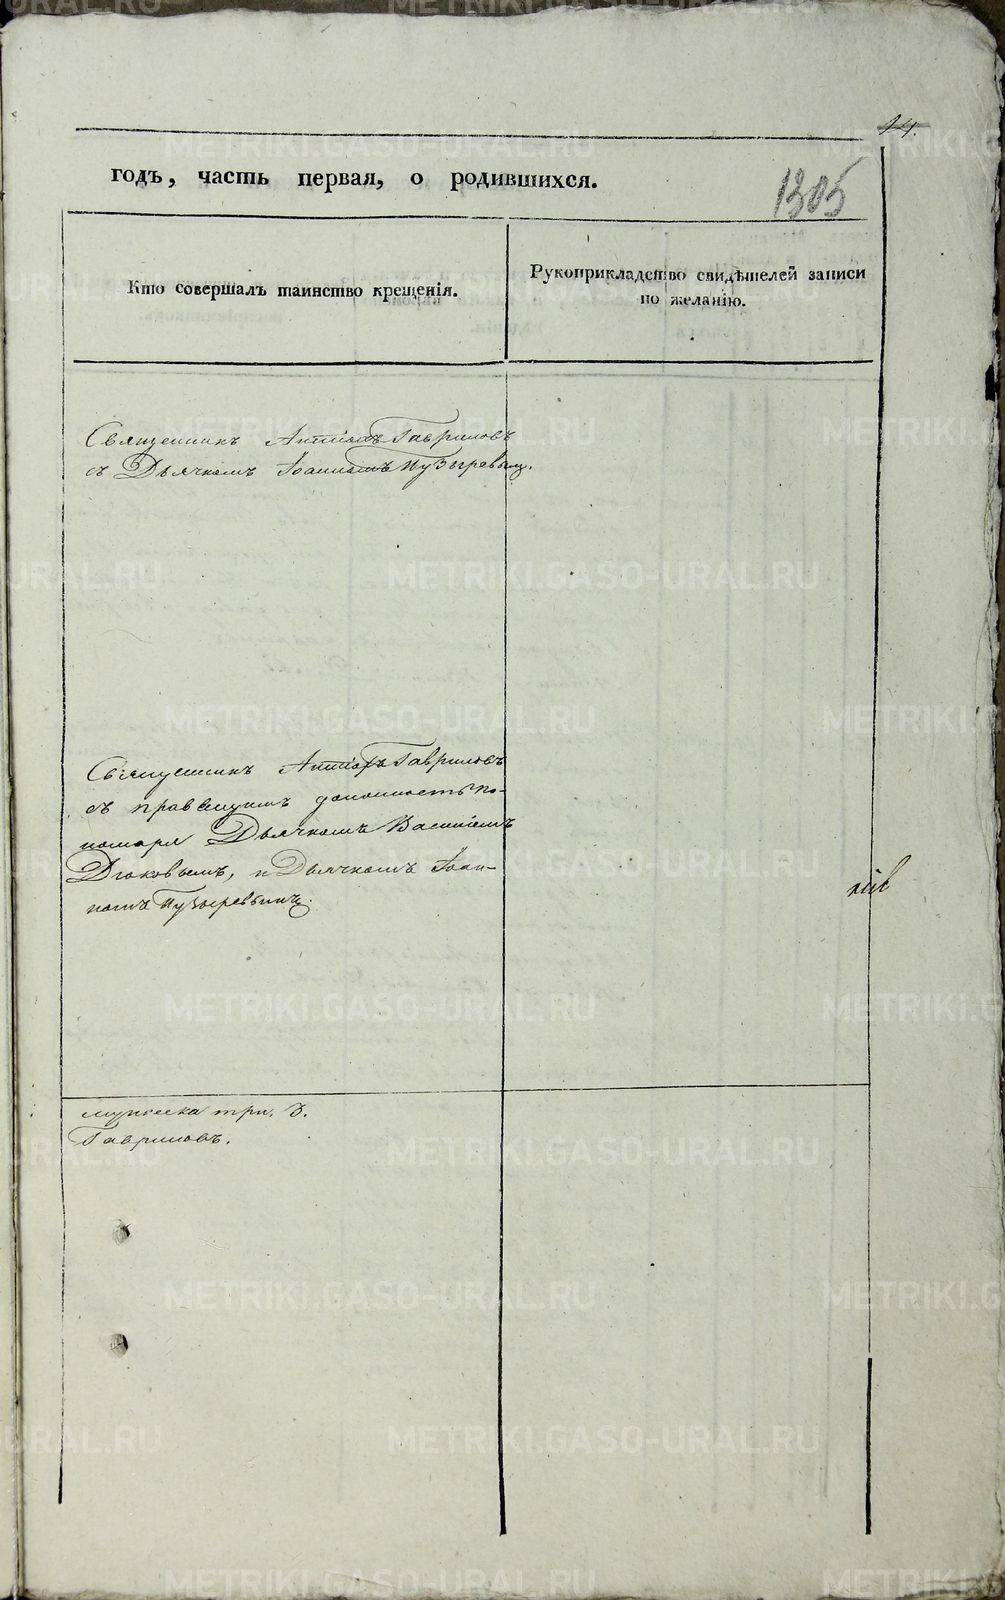 14.
годъ, часть первая, о родившихся.
1305
Кто совершалъ таинство крещенія.
Рукоприкладство свидѣтелей записи
по желанію.
Священникъ Антіохъ Гавриловъ
съ Дьячкомъ Іоанномъ Пузыревымъ.
Священникъ Антіохъ Гавриловъ
съ правящимъ должность по-
номаря Дьячкомъ Василіемъ
и Дьячкомъ Іоан-
номъ Пузыревымъ.
мужеска три. 3.
Гавриловъ.
METRIKI.GASO-URAL.RU